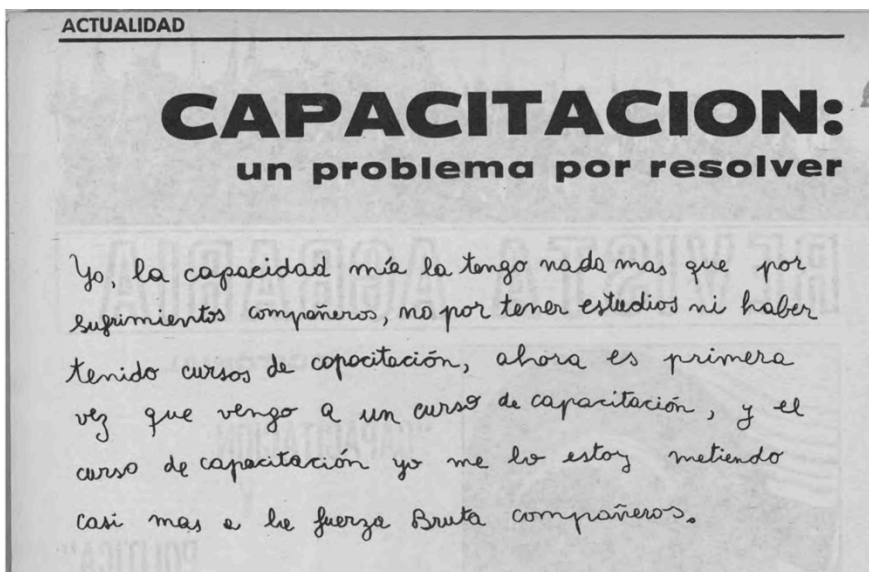 ACTUALIDAD
CAPACITACION:
un problema por resolver
Yo, la capacidad mía la tengo nada mas que por
sufrimientos compañeros, no por tener estudios ni haber
tenido cursos de capacitación, ahora es primera
vez que vengo a un curso de capacitación, y el
curso de capacitación yo me lo estoy metiendo
casi mas a la fuerza Bruta compañeros.